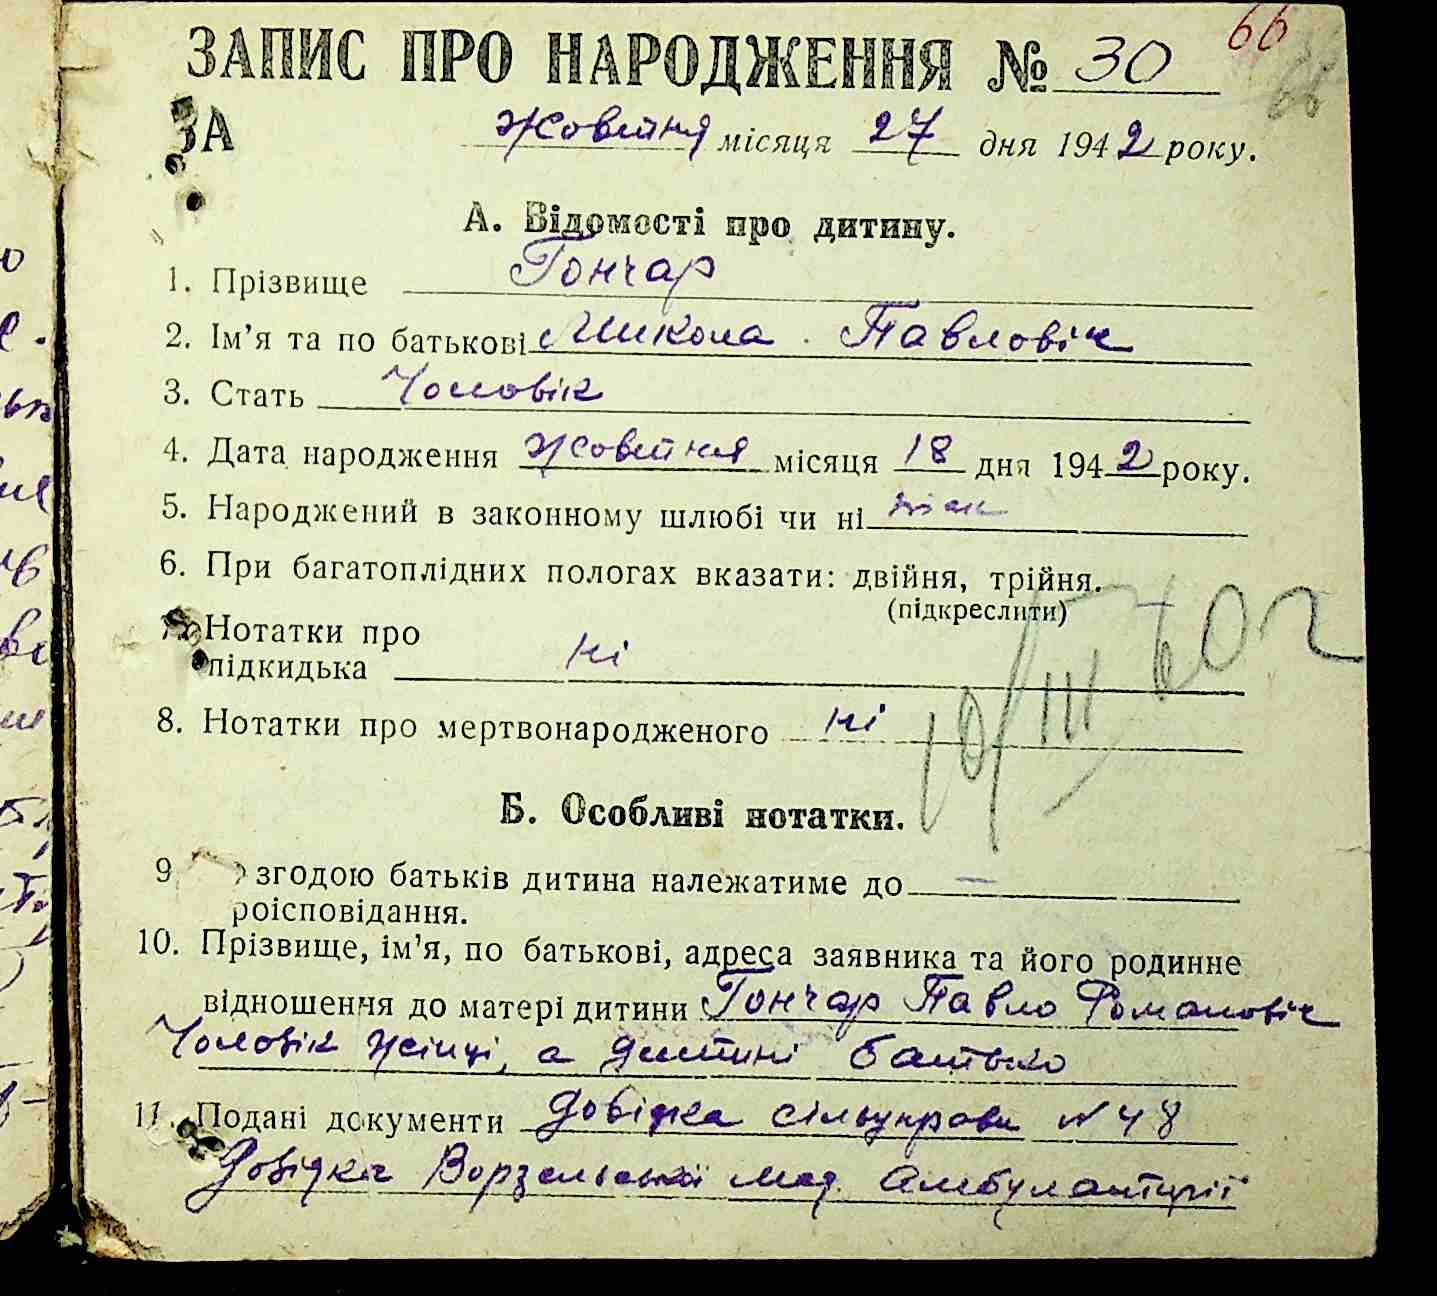 66
66
ЗАПИС ПРО НАРОДЖЕННЯ № 30
ЗА жовтня місяця 27 дня 1942 року.
А. Відомості про дитину.
1. Прізвище Гончар
2. Ім'я та по батькові Микола Павловіч
3. Стать Чоловік
4. Дата народження жовтня місяця 18 дня 1942 року.
5. Народжений в законному шлюбі чи ні так
6. При багатоплідних пологах вказати: двійня, трійня.
(підкреслити)
7. Нотатки про
підкидька ні
8. Нотатки про мертвонародженого ні
10/III 60 г
Б. Особливі нотатки.
9 згодою батьків дитина належатиме до —
роісповідання.
10. Прізвище, ім'я, по батькові, адреса заявника та його родинне
відношення до матері дитини Гончар Павло Романовіч
Чоловік жінці, а дитині батько
11. Подані документи Довідка сільуправи N 48
Довідка Ворзельської мед. Амбулаторії